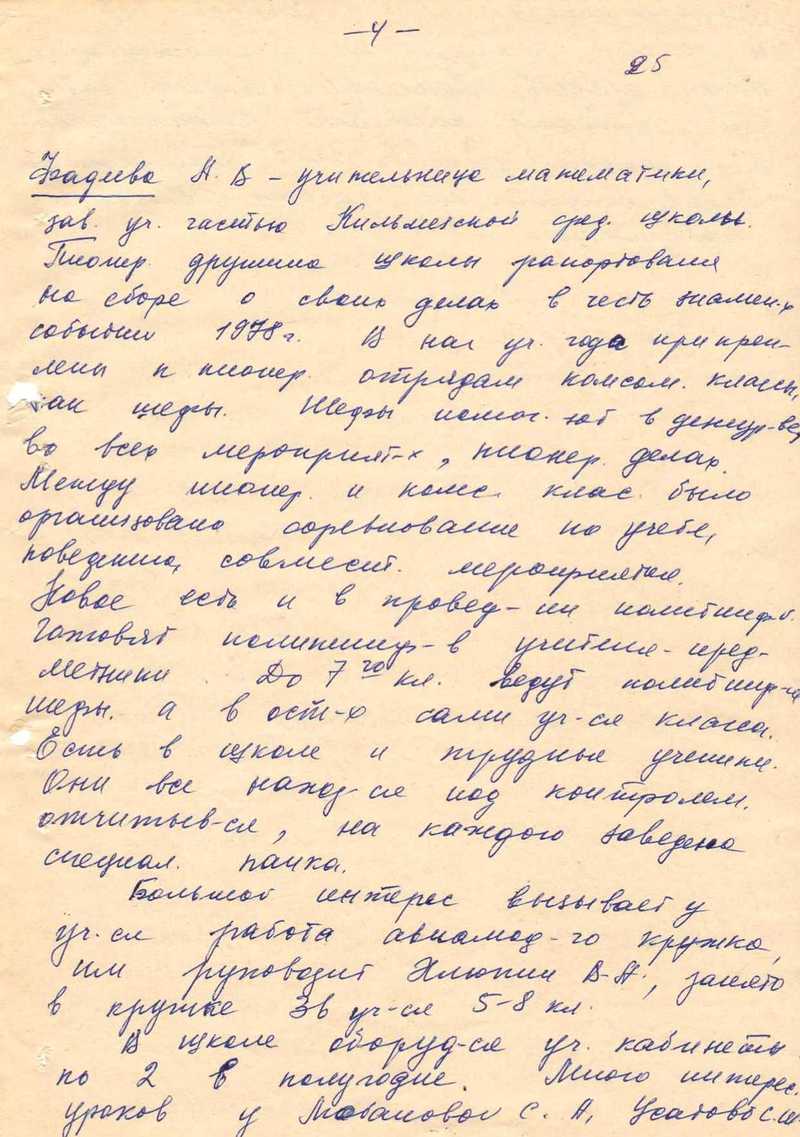 — 4 —
25
Фадиева А. В – учительница математики,
зав. уч. частью Кильмезской сред. школы.
Пионер. дружина школы рапортовала
на сборе о своих делах в честь знамен-х
событий 1978 г. В нас уч. года прикреп-
лены к пионер. отрядам комсом. классы,
как шефы. Шефы помог-ют в дежур-ве,
во всех мероприят-х, пионер. делах.
Между пионер. и комс. клас. было
организовано соревнование по учебе,
поведению, совмест. мероприятия.
Новое есть и в провед-ии политинф-й.
Готовят политинф-в учителя-пред-
метники. До 7го кл. ведут политинф-и
шефы. а в ост-х сами уч-ся класса.
Есть в школе и трудные ученики.
Они все наход-ся под контролем.
отчитыв-ся, на каждого заведена
специал. папка.
Большой интерес вызывает у
уч-ся работа авиамод-го кружка,
им руководит Хлюпин В. А., занято
в кружке уч-ся 5-8 кл.
В школе оборуд-ся уч. кабинеты
по 2 в полугодие. Много интерес.
уроков у С. А,